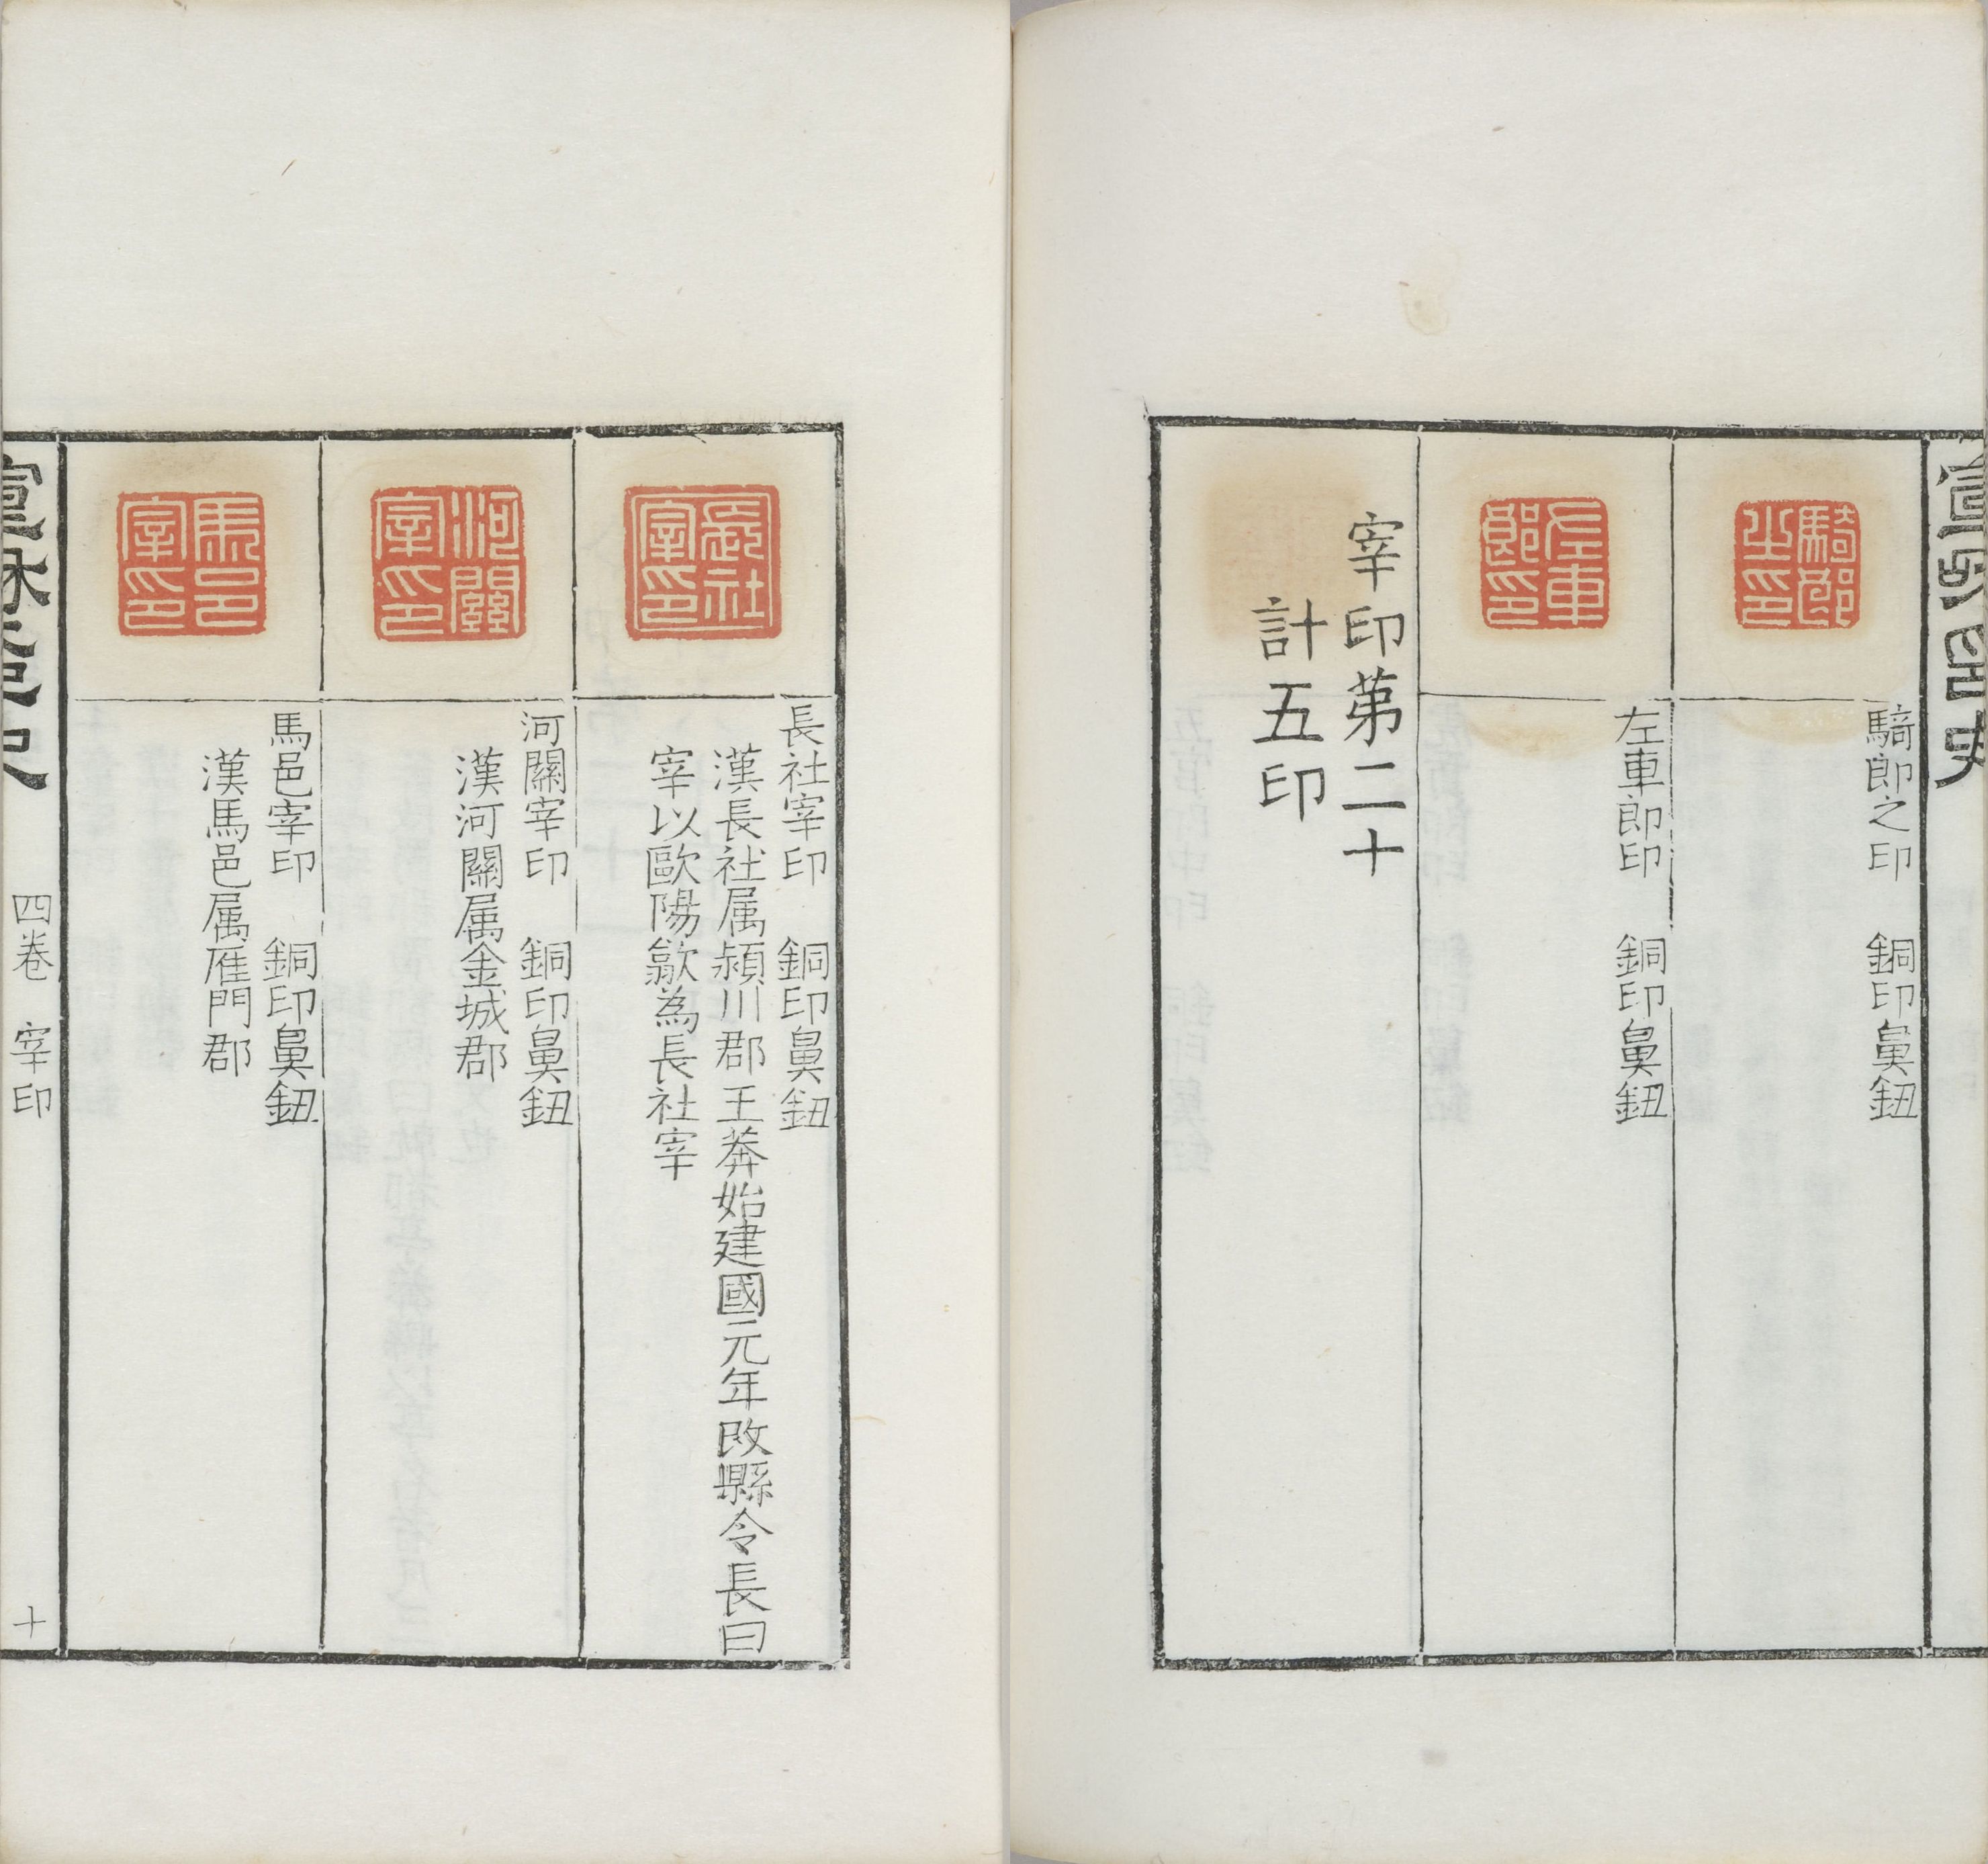 騎郎之印
騎郎之印　銅印鼻鈕
左車郎印
左車郎印　銅印鼻鈕
宰印第二十
計五印
長社宰印
長社宰印　銅印鼻鈕
漢長社属潁川郡王莽始建國元年改縣令長曰
宰以歐陽歙為長社宰
河關宰印
河關宰印　銅印鼻鈕
漢河關属金城郡
馬邑宰印
馬邑宰印　銅印鼻鈕
漢馬邑属雁門郡
四卷　宰印　十